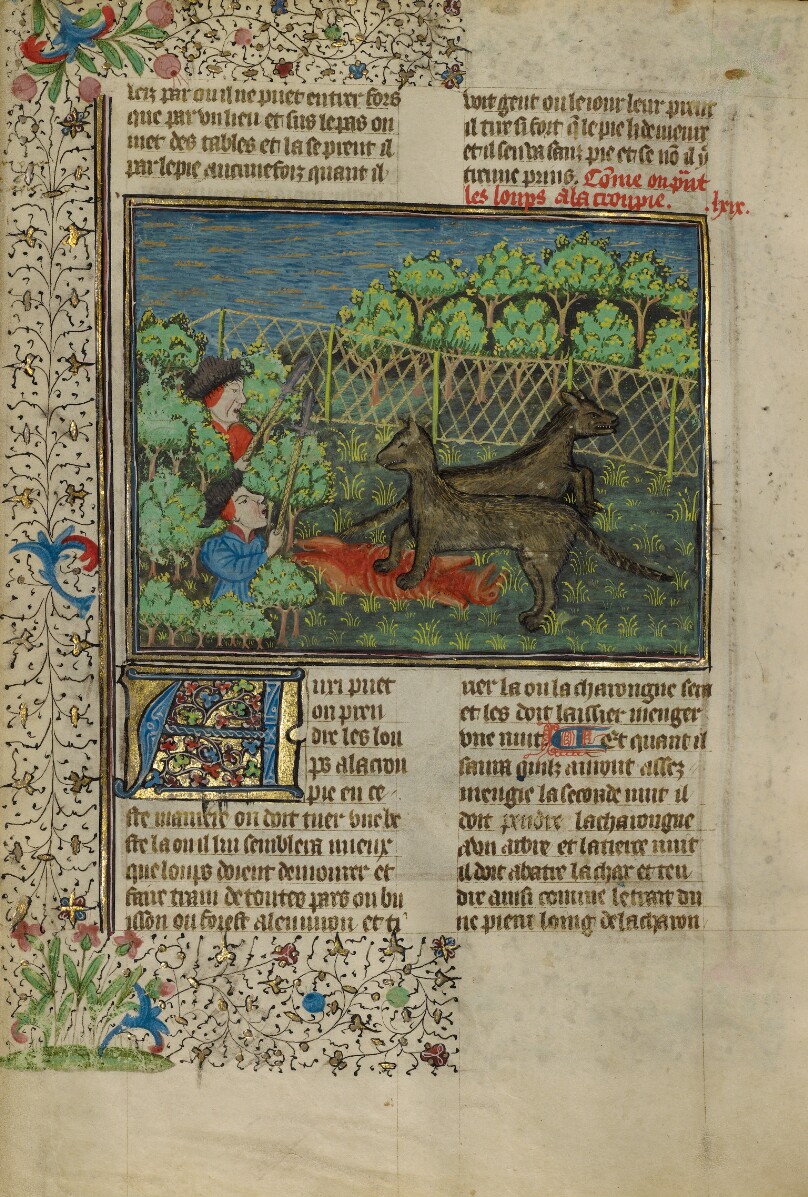 leiz par ou il ne puet entrer fors
que par vn lieu et sus le pas on
met des tables et la se prent il
par le pie aucunefoiz quant il
voit gent ou le iour leur prent
il tire si fort q̃ le pie li demeure
et il sen va sanz pie et se nõ il y
tienne prins. Cõme on p̃nt
les loups a la croupie. .lxix.
Auxi puet
on pren
dre les lou
ps a la crou
pie en ce
ste maniere on doit tuer vne be
ste la ou il lui semblera mieux
que loups doient demourer et
faire train de toutes pars ou bu
isson ou forest alenuiron et ti
rer la ou la charongne sera
et les doit laissier menger
vne nuit Et quant il
saura quilz auront assez
mengie la seconde nuit il
doit pendre la charongue
a vn arbre et la tierce nuit
il doit abatre la char et ten
dir ainsi comme le trait du
ne pierre loing de la charon